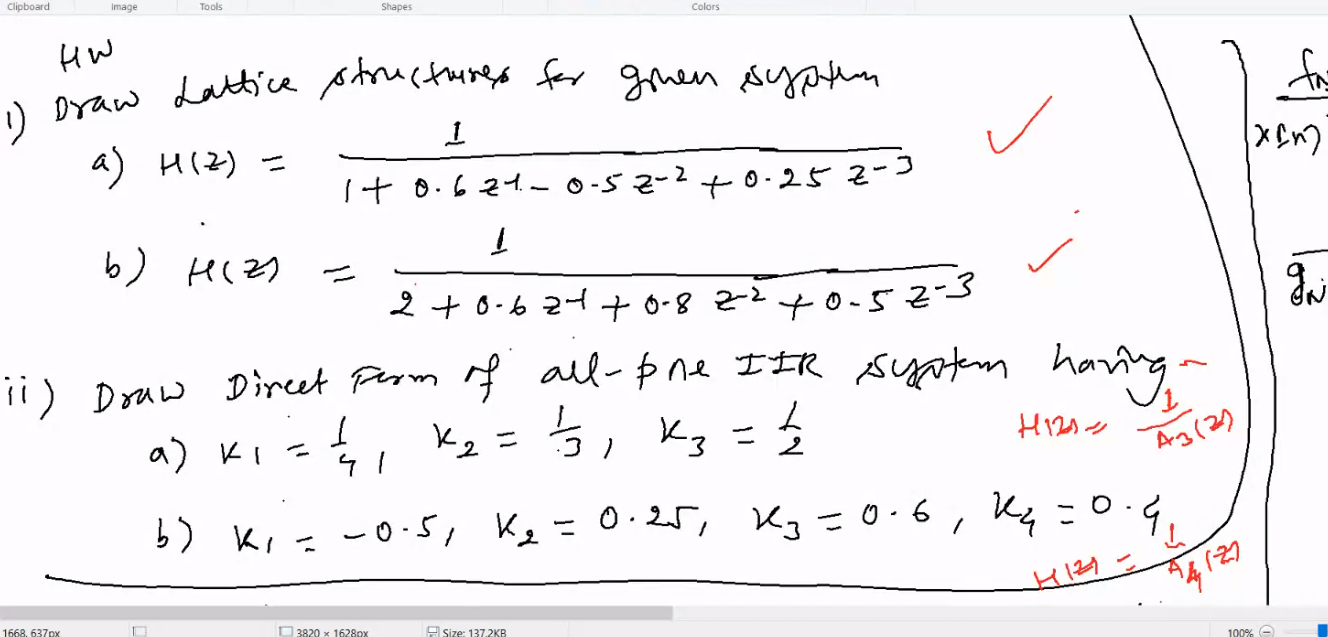 Clipboard Image Tools Shapes Colors
HW
i) Draw Lattice structures for given system
a) H(z) = 1 / (1 + 0.6 z^-1 - 0.5 z^-2 + 0.25 z^-3)
b) H(z) = 1 / (2 + 0.6 z^-1 + 0.8 z^-2 + 0.5 z^-3)
ii) Draw Direct Form of all-pole IIR system having -
H(z) = 1 / A3(z)
a) K1 = 1/4, K2 = 1/3, K3 = 1/2
b) K1 = -0.5, K2 = 0.25, K3 = 0.6, K4 = 0.4
H(z) = 1 / A4(z)
x[n]
gN
1668, 637px 3820 × 1628px Size: 137.2KB 100%